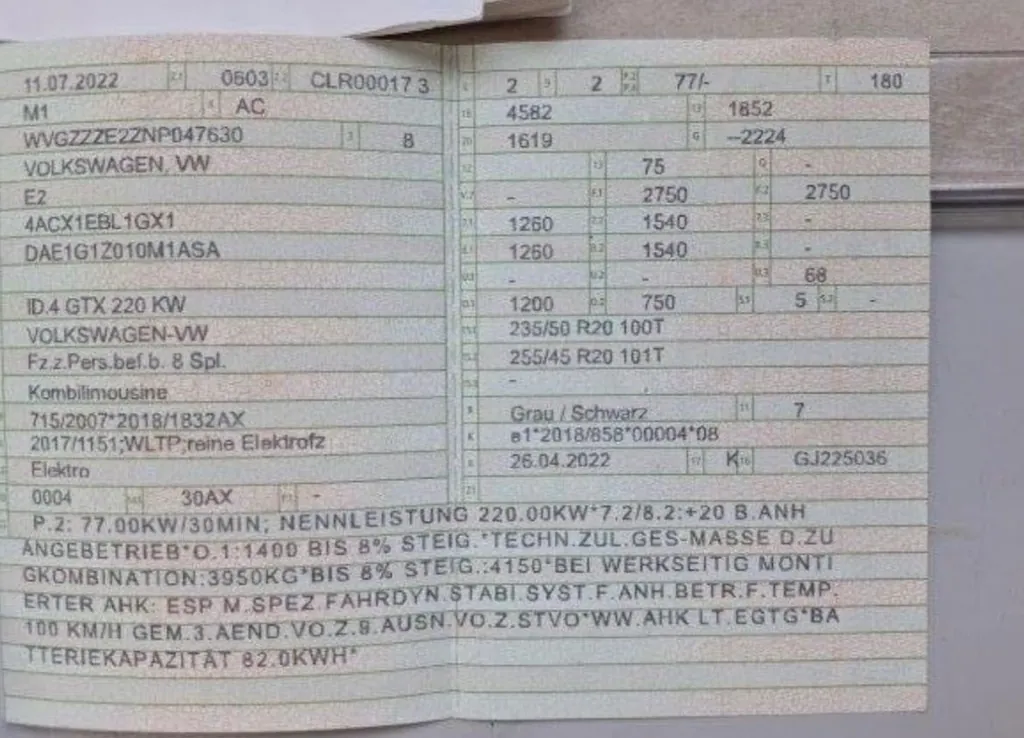 11.07.2022 2.1 0603 2.2 CLR00017 3
M1 4 AC
WVGZZZE2ZNP047630 3 8
VOLKSWAGEN, VW
E2
4ACX1EBL1GX1
DAE1G1Z010M1ASA
ID.4 GTX 220 KW
VOLKSWAGEN-VW
Fz.z.Pers.bef.b. 8 Spl.
Kombilimousine
715/2007*2018/1832AX
2017/1151;WLTP;reine Elektrofz
Elektro
0004 14.1 30AX P.1 -
2 9 2 P.2 P.4 77/- T 180
18 4582 19 1852
20 1619 G --2224
12 13 75 Q -
V.7 - F.1 2750 F.2 2750
7.1 1260 7.2 1540 7.3 -
8.1 1260 8.2 1540 8.3 -
U.1 - U.2 - U.3 68
O.1 1200 O.2 750 S.1 5 S.2 -
15.1 235/50 R20 100T
15.2 255/45 R20 101T
15.3 -
R Grau / Schwarz 11 7
K e1*2018/858*00004*08
6 26.04.2022 17 K 16 GJ225036
21
P.2: 77.00KW/30MIN; NENNLEISTUNG 220.00KW*7.2/8.2:+20 B.ANH
ANGEBETRIEB*O.1:1400 BIS 8% STEIG.*TECHN.ZUL.GES-MASSE D.ZU
GKOMBINATION:3950KG*BIS 8% STEIG.:4150*BEI WERKSEITIG MONTI
ERTER AHK: ESP M.SPEZ.FAHRDYN.STABI.SYST.F.ANH.BETR.F.TEMP.
100 KM/H GEM.3.AEND.VO.Z.9.AUSN.VO.Z.STVO*WW.AHK LT.EGTG*BA
TTERIEKAPAZITÄT 82.0KWH*